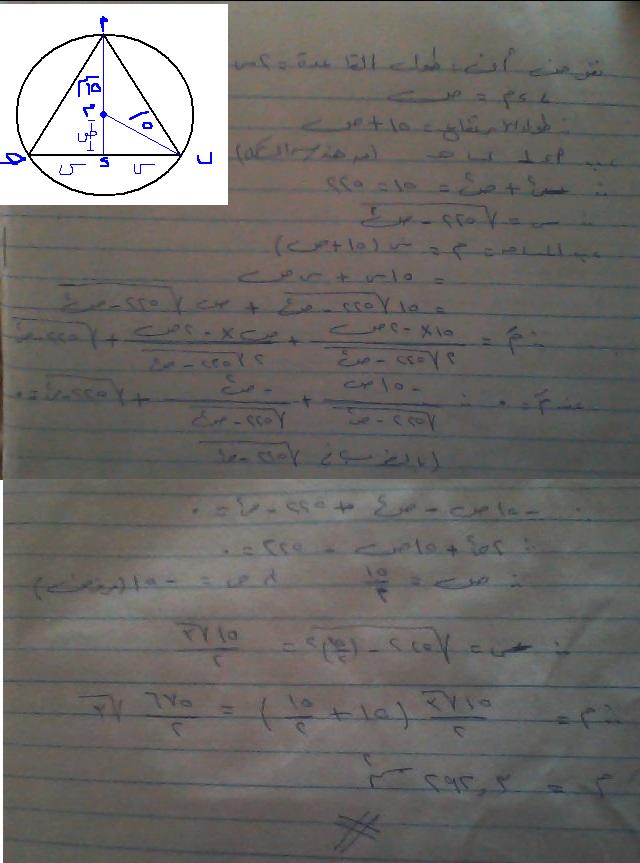 م
١٥
١٥
ص
س
س
ء
ب
نفرض أن : طول القاعدة = ٢س
، ء م = ص
∴ طول الارتفاع = ١٥ + ص
∴ س² + ص² = ١٥² = ٢٢٥
∴ س = √(٢٢٥ - ص²)
المساحة = م = س (١٥ + ص)
= ١٥س + س ص
= ١٥√(٢٢٥ - ص²) + ص√(٢٢٥ - ص²)
∴ مَ = (١٥ × -٢ص)/(٢√(٢٢٥ - ص²)) + (ص × -٢ص)/(٢√(٢٢٥ - ص²)) + √(٢٢٥ - ص²)
عند مَ = ٠ ∴ -١٥ص/√(٢٢٥ - ص²) + -ص²/√(٢٢٥ - ص²) + √(٢٢٥ - ص²) = ٠
(بالضرب في √(٢٢٥ - ص²)
∴ -١٥ص - ص² + ٢٢٥ - ص² = ٠
∴ ٢ص² + ١٥ص - ٢٢٥ = ٠
∴ ص = ١٥/٢ ، ص = -١٥ (مرفوض)
∴ س = √(٢٢٥ - (١٥/٢)²) = ١٥√٣/٢
∴ م = ١٥√٣/٢ (١٥ + ١٥/٢) = ٦٧٥/٤ √٣
م = ٢٩٢,٣ سم²
#